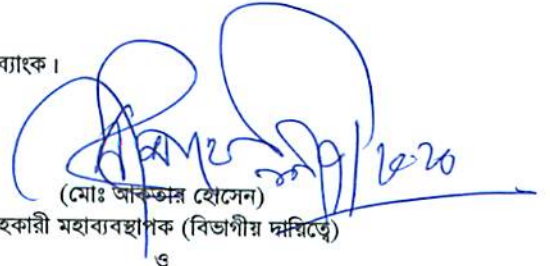 ব্যাংক।
(মোঃ আকতার হোসেন)
হকারী মহাব্যবস্থাপক (বিভাগীয় দায়িত্বে)
ও